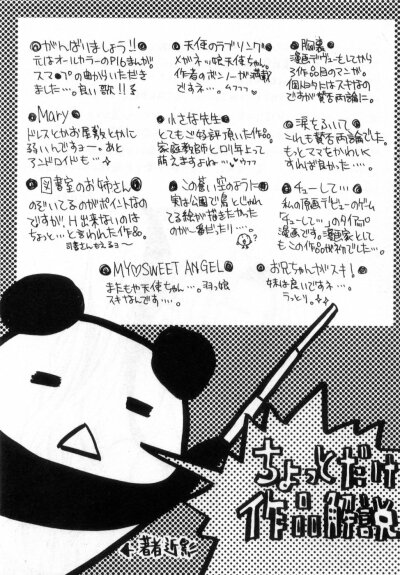 がんばりましょう!!
元はオールカラーのP16まんが
スマ○プの曲からいただき
ました…。良い歌!!
天使のラブソング
メガネッ娘天使ちゃん。
作者のボンノーが満載
ですネ…。ウフフ
脳裏
漫画デヴューもしてから
3作品目のマンガ。
個人的にはスキなの
ですが賛否両論に。
Mary
ドレスとかお屋敷とかに
弱いんですョー。あと
アンドロイドも…。
小さな先生
とてもご好評頂いた作品。
家庭教師とロリ号って
萌えますよねー。ウフフ
涙をふいて
これも賛否両論でした。
もっとママをかわいく
すれば良かった…。
図書室のお姉さん
のぞいてるのがポイントなの
ですが、H出来ないのは
ちょっと…と言われた作品。
この蒼い空のように
実は公園で鳥とじゃれ
てる絵が描きたかった
のが一番だったり…。
チューして…
私の原画デビューゲーム
「チューして…」のタイアップ
漫画です。漫画家として
もこの作品が初でした…。
MY♡SWEET ANGEL
またもや天使ちゃん…。ヨヨッ娘
スキなんです…。
お兄ちゃんがスキ!
妹は良いですネ…。
うっとり。
ちょっとだけ
作品解説
著者近影